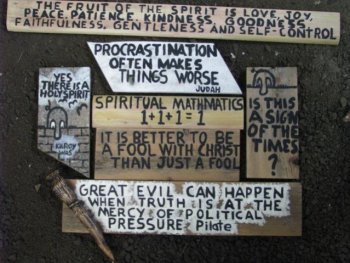 THE FRUIT OF THE SPIRIT IS LOVE, JOY,
PEACE, PATIENCE, KINDNESS, GOODNESS,
FAITHFULNESS, GENTLENESS AND SELF-CONTROL
PROCRASTINATION
OFTEN MAKES
THINGS WORSE
JUDAH
YES
THERE IS A
HOLY SPIRIT
KILROY
SPIRITUAL MATHMATICS
1+1+1=1
IT IS BETTER TO BE
A FOOL WITH CHRIST
THAN JUST A FOOL
IS THIS
A SIGN
OF THE
TIMES
?
GREAT EVIL CAN HAPPEN
WHEN TRUTH IS AT THE
MERCY OF POLITICAL
PRESSURE Pilate